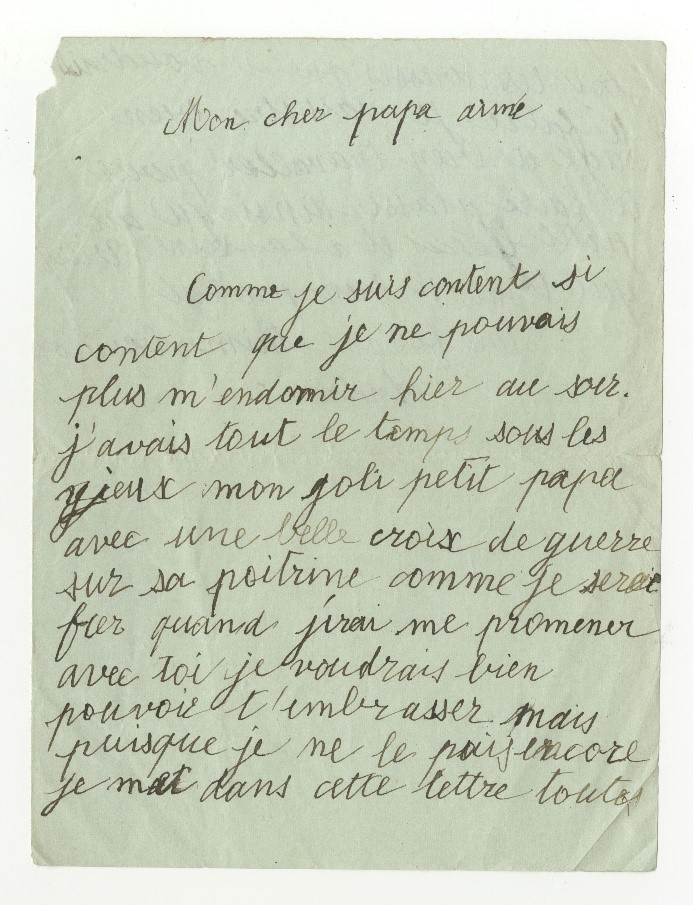 Mon cher papa aimé
Comme je suis content si
content que je ne pouvais
plus m'endormir hier au soir.
j'avais tout le temps sous les
yieux mon joli petit papa
avec une belle croix de guerre
sur sa poitrine comme je serai
fier quand j'irai me promener
avec toi je voudrais bien
pouvoir t'embrasser mais
puisque je ne le puis encore
je met dans cette lettre toutes